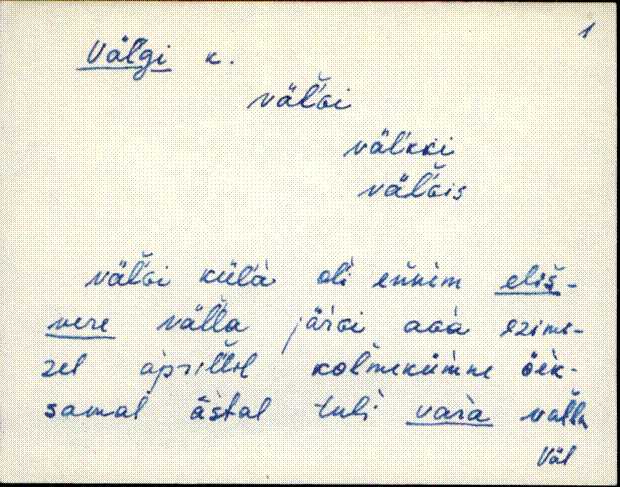 1
Välgi k.
väl̆Gi
väl̆kki
väl̆Gis
väl̆Gi külà oli ennèm eliš-
vere val̆la järvi aGà ezime-
zel àpril̆lil kolmekümne öèk-
samal ā̀stal tuli vara val̆la
Väl